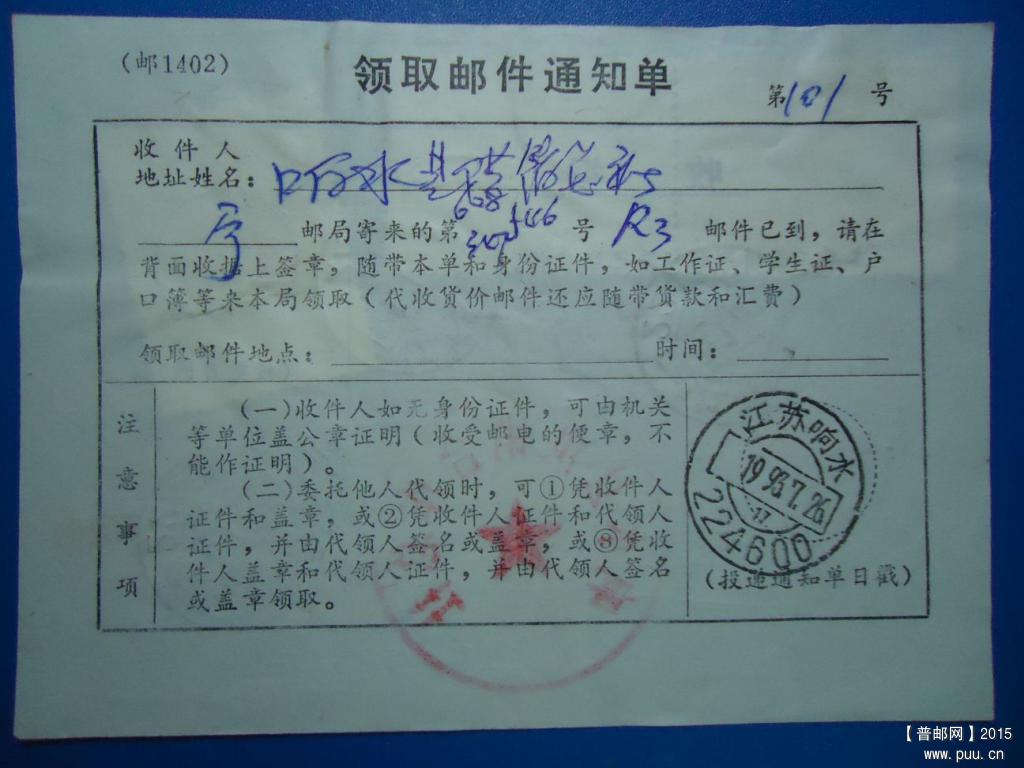 (邮1402)
领取邮件通知单
第101号
收件人
地址姓名：响水县
邮局寄来的第 号 邮件已到，请在
背面收据上签章，随带本单和身份证件，如工作证、学生证、户
口簿等来本局领取（代收货价邮件还应随带货款和汇费）
领取邮件地点： 时间：
注意事项
（一）收件人如无身份证件，可由机关
等单位盖公章证明（收受邮电的便章，不
能作证明）。
（二）委托他人代领时，可①凭收件人
证件和盖章，或②凭收件人证件和代领人
证件，并由代领人签名或盖章，或⑧凭收
件人盖章和代领人证件，并由代领人签名
或盖章领取。
江苏响水
224600
（投递通知单日戳）
【普邮网】2015
www.puu.cn